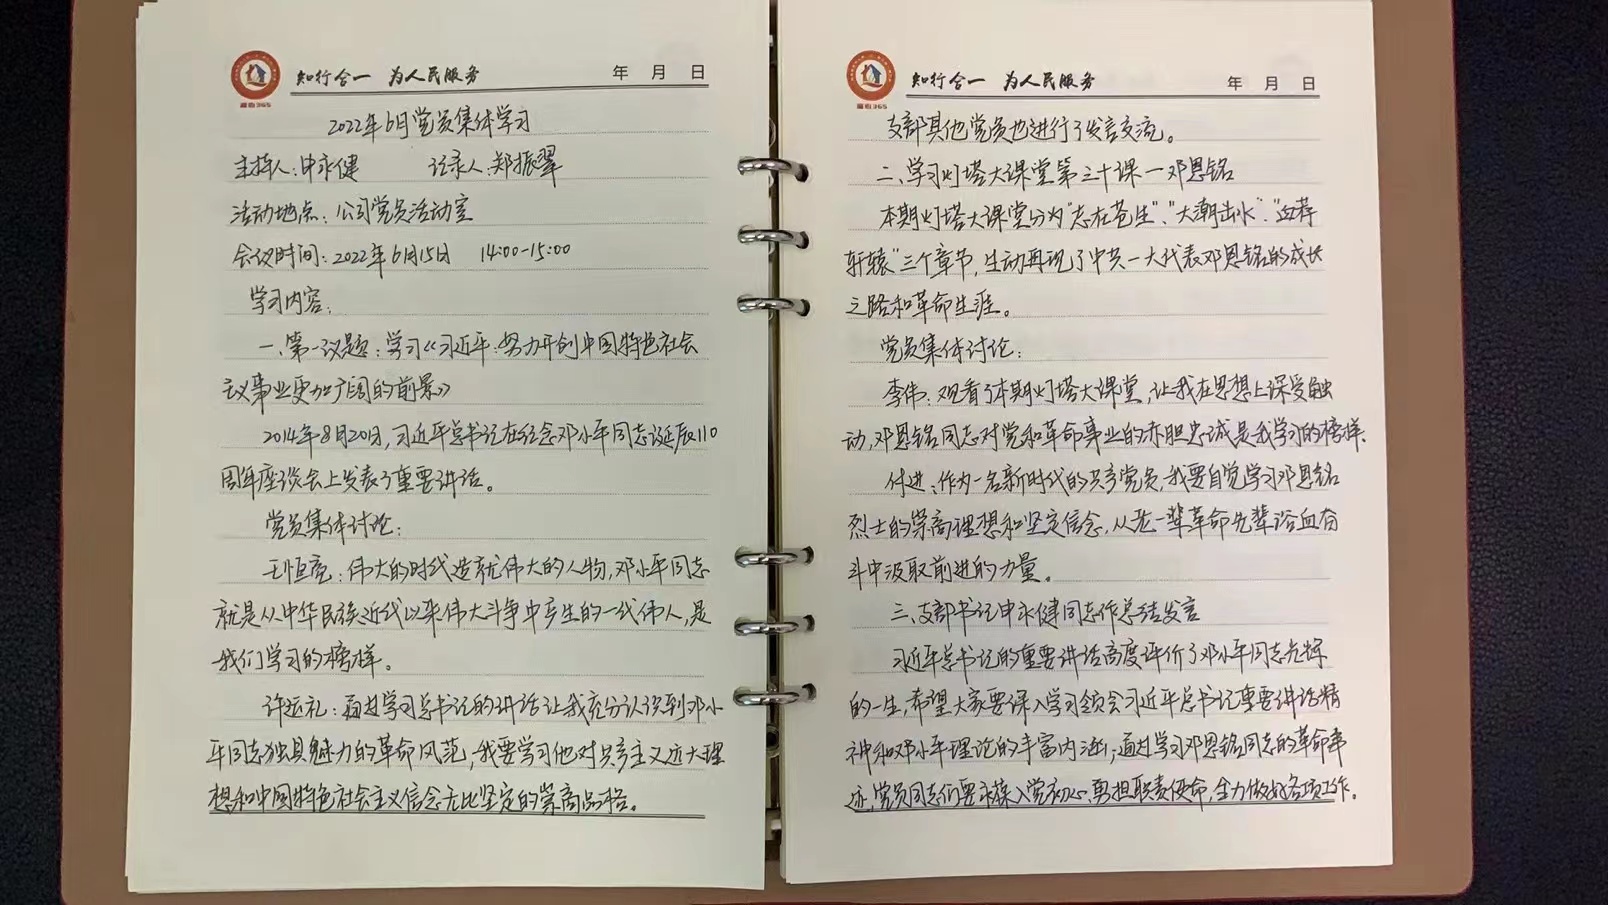 知行合一 为人民服务
年 月 日
2022年6月党员集体学习
主持人:申永健 记录人:郑振翠
活动地点:公司党员活动室
会议时间:2022年6月15日 14:00-15:00
学习内容:
一、第一议题:学习《习近平:努力开创中国特色社会
主义事业更加广阔的前景》
2014年8月20日,习近平总书记在纪念邓小平同志诞辰110
周年座谈会上发表了重要讲话。
党员集体讨论:
王恒亮:伟大的时代造就伟大的人物,邓小平同志
就是从中华民族近代以来伟大斗争中产生的一代伟人,是
我们学习的榜样。
许远礼:通过学习总书记的讲话让我充分认识到邓小
平同志独具魅力的革命风范,我要学习他对共产主义远大理
想和中国特色社会主义信念无比坚定的崇高品格。
知行合一 为人民服务
年 月 日
支部其他党员也进行了发言交流。
二、学习灯塔大课堂第三十课—邓恩铭
本期灯塔大课堂分为"志在苍生"、"大潮出水"、"血荐
轩辕"三个章节,生动再现了中共一大代表邓恩铭的成长
之路和革命生涯。
党员集体讨论:
李伟:观看了本期灯塔大课堂,让我在思想上深受触
动,邓恩铭同志对党和革命事业的赤胆忠诚是我学习的榜样.
付进:作为一名新时代的共产党员,我要自觉学习邓恩铭
烈士的崇高理想和坚定信念,从老一辈革命先辈浴血奋
斗中汲取前进的力量。
三、支部书记申永健同志作总结发言
习近平总书记的重要讲话高度评价了邓小平同志光辉
的一生,希望大家要深入学习领会习近平总书记重要讲话精
神和邓小平理论的丰富内涵;通过学习邓恩铭同志的革命事
迹,党员同志们要永葆入党初心,勇担职责使命,全力做好各项工作.